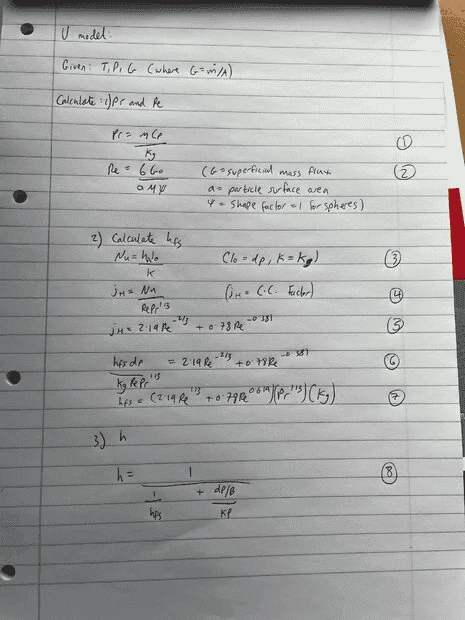 U model:
Given: T, P, G (where G = ṁ/A)
Calculate: 1) Pr and Re
Pr = μ Cp / kg ①
Re = 6 G0 / a μ ψ (G = superficial mass flux ②
a = particle surface area
ψ = shape factor = 1 for spheres)
2) Calculate hfs
Nu = h l0 / K (l0 = dp, K = kg) ③
jH = Nu / Re Pr^1/3 (jH = C.C. factor) ④
jH = 2.19 Re^-2/3 + 0.78 Re^-0.381 ⑤
hfs dp / kg Re Pr^1/3 = 2.19 Re^-2/3 + 0.78 Re^-0.381 ⑥
hfs = (2.19 Re^1/3 + 0.78 Re^0.619)(Pr^1/3)(kg) ⑦
3) h
h = 1 / (1/hfs + (dp/β)/kp) ⑧